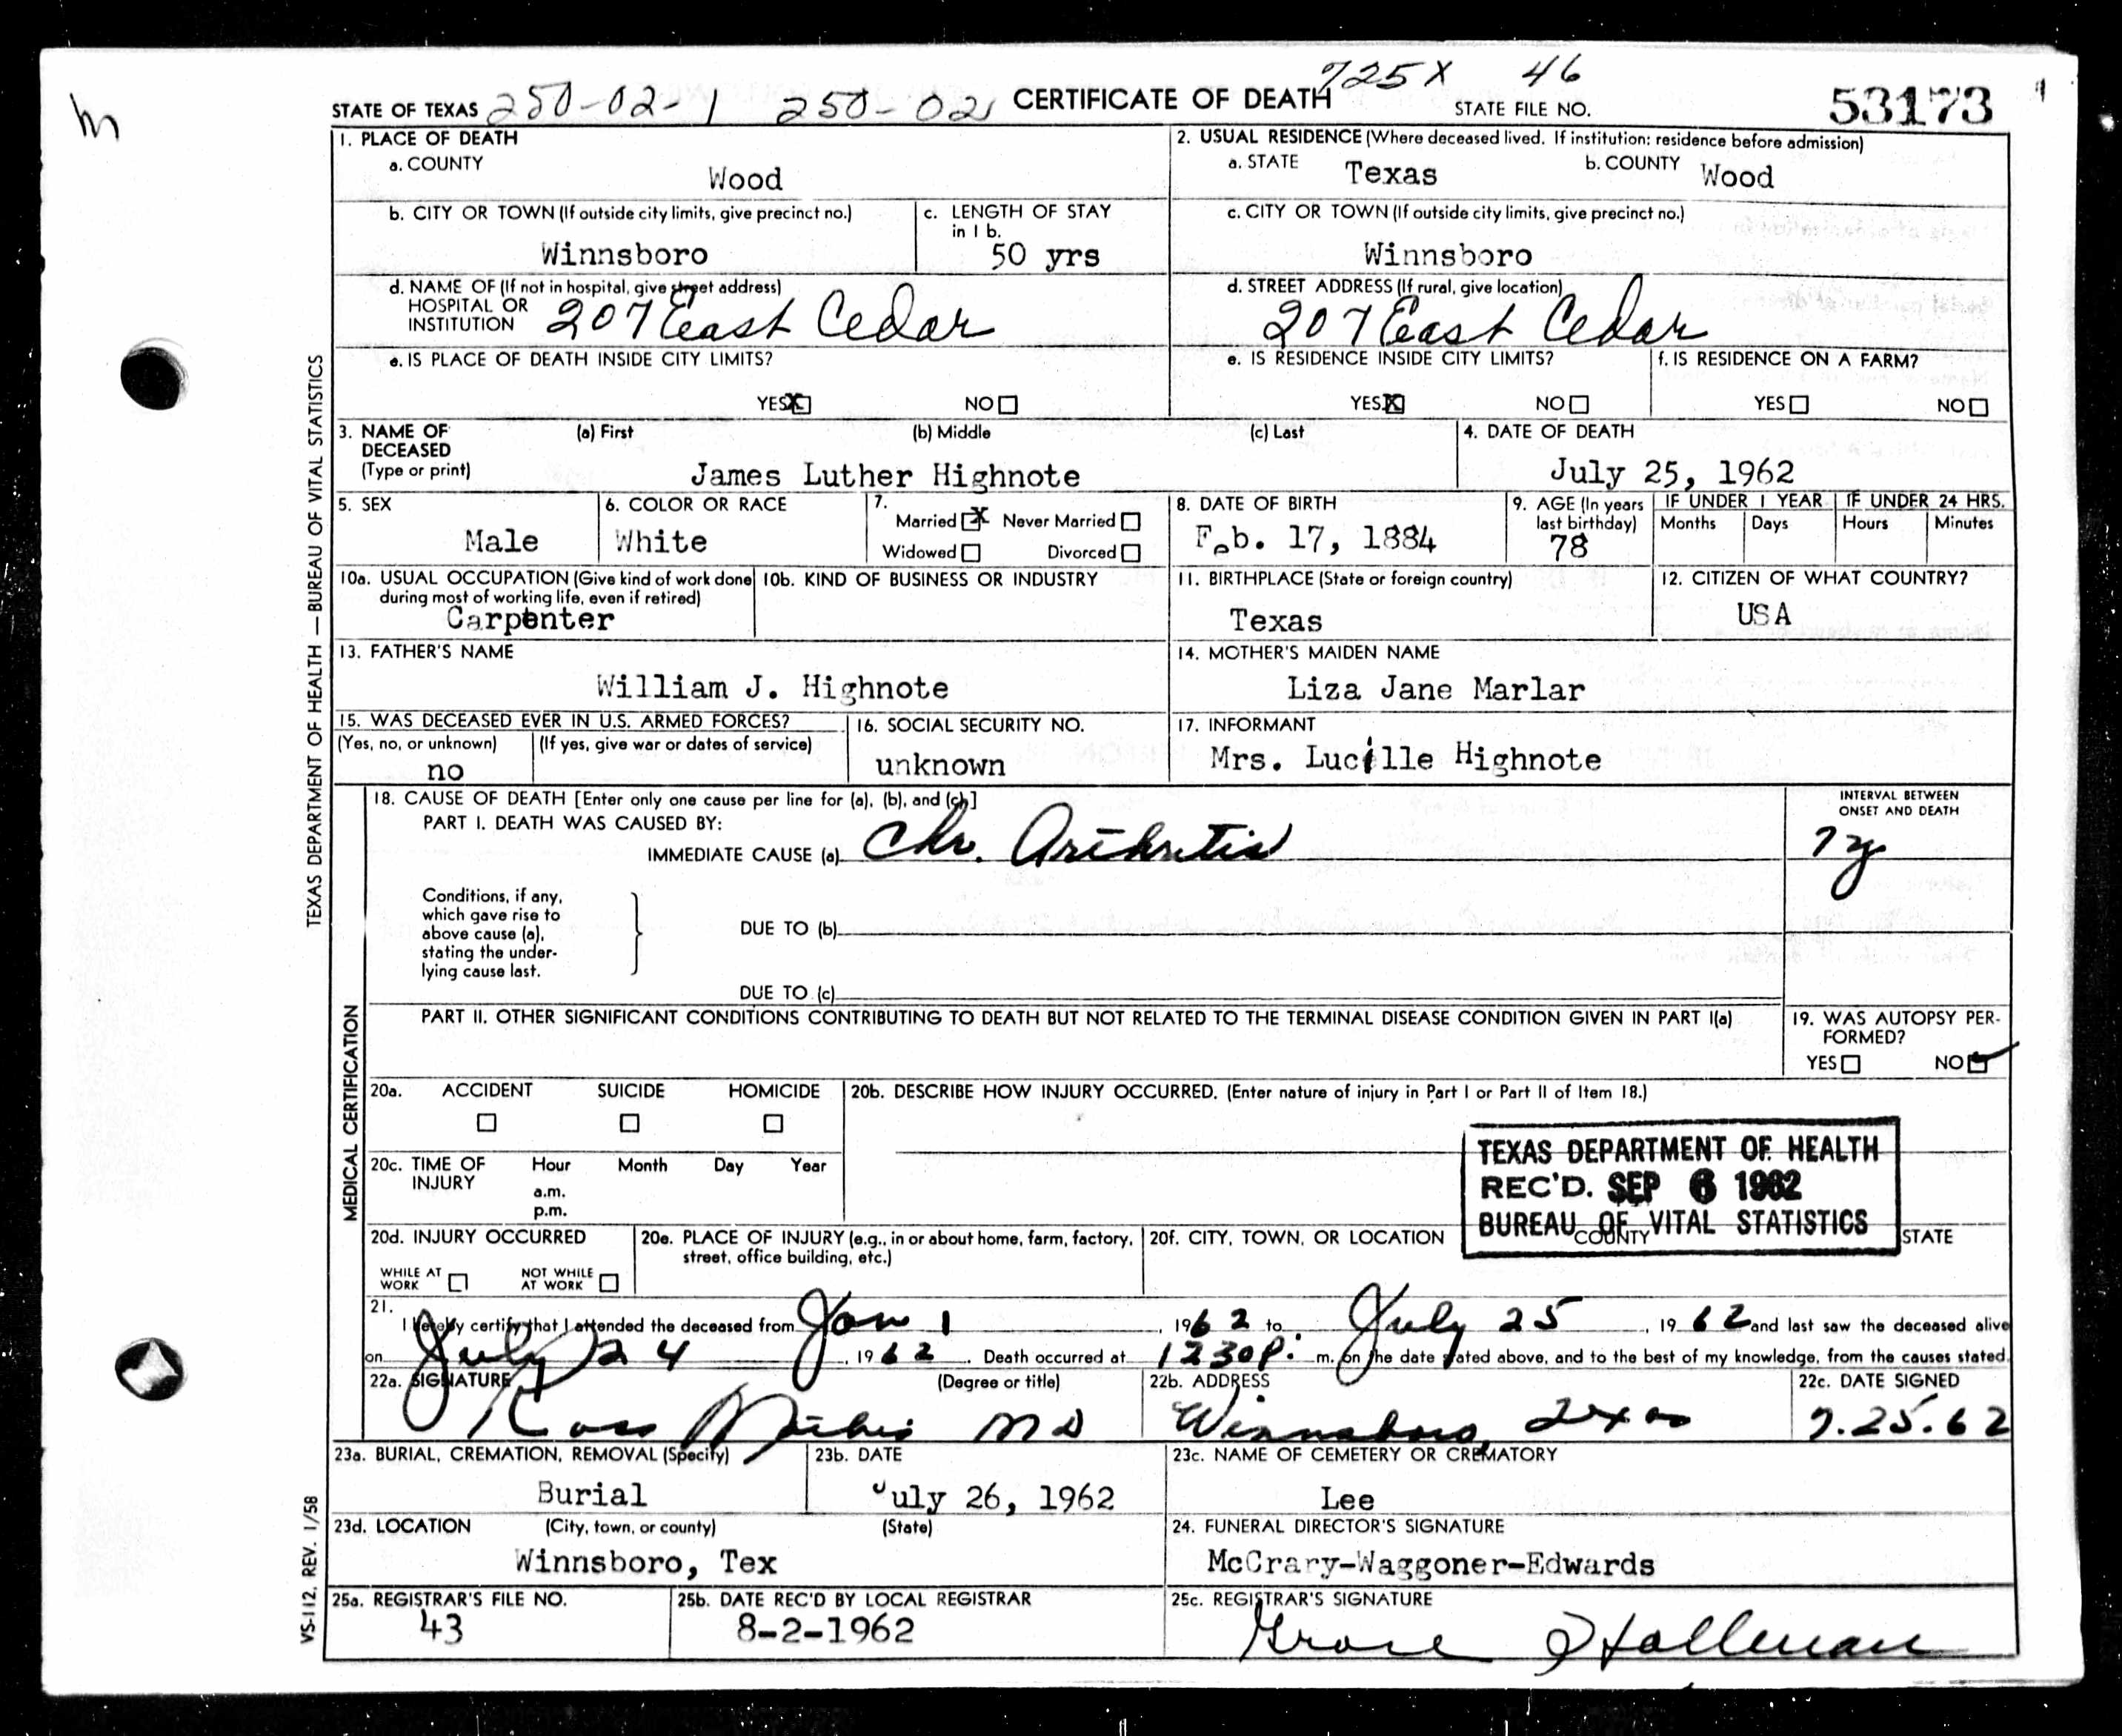 725X 46
STATE OF TEXAS 250-02-1 250-02 CERTIFICATE OF DEATH STATE FILE NO. 53173
1. PLACE OF DEATH
a. COUNTY
Wood
2. USUAL RESIDENCE (Where deceased lived. If institution: residence before admission)
a. STATE Texas b. COUNTY Wood
b. CITY OR TOWN (If outside city limits, give precinct no.)
Winnsboro
c. LENGTH OF STAY
in 1 b.
50 yrs
c. CITY OR TOWN (If outside city limits, give precinct no.)
Winnsboro
d. NAME OF (If not in hospital, give street address)
HOSPITAL OR
INSTITUTION 207 East Cedar
d. STREET ADDRESS (If rural, give location)
207 East Cedar
e. IS PLACE OF DEATH INSIDE CITY LIMITS?
YES X NO
e. IS RESIDENCE INSIDE CITY LIMITS?
YES X NO
f. IS RESIDENCE ON A FARM?
YES NO
3. NAME OF DECEASED (Type or print)
(a) First (b) Middle (c) Last
James Luther Highnote
4. DATE OF DEATH
July 25, 1962
5. SEX
Male
6. COLOR OR RACE
White
7.
Married X Never Married
Widowed Divorced
8. DATE OF BIRTH
Feb. 17, 1884
9. AGE (In years
last birthday)
78
IF UNDER 1 YEAR
Months Days
IF UNDER 24 HRS.
Hours Minutes
10a. USUAL OCCUPATION (Give kind of work done
during most of working life, even if retired)
Carpenter
10b. KIND OF BUSINESS OR INDUSTRY
11. BIRTHPLACE (State or foreign country)
Texas
12. CITIZEN OF WHAT COUNTRY?
USA
13. FATHER'S NAME
William J. Highnote
14. MOTHER'S MAIDEN NAME
Liza Jane Marlar
15. WAS DECEASED EVER IN U.S. ARMED FORCES?
(Yes, no, or unknown) (If yes, give war or dates of service)
no
16. SOCIAL SECURITY NO.
unknown
17. INFORMANT
Mrs. Lucille Highnote
18. CAUSE OF DEATH [Enter only one cause per line for (a), (b), and (c).]
PART I. DEATH WAS CAUSED BY:
IMMEDIATE CAUSE (a) Chr. Arthritis
INTERVAL BETWEEN
ONSET AND DEATH
Conditions, if any,
which gave rise to
above cause (a),
stating the under-
lying cause last.
DUE TO (b)
DUE TO (c)
PART II. OTHER SIGNIFICANT CONDITIONS CONTRIBUTING TO DEATH BUT NOT RELATED TO THE TERMINAL DISEASE CONDITION GIVEN IN PART I(a)
19. WAS AUTOPSY PER-
FORMED?
YES NO
20a. ACCIDENT SUICIDE HOMICIDE
20b. DESCRIBE HOW INJURY OCCURRED. (Enter nature of injury in Part I or Part II of Item 18.)
20c. TIME OF
INJURY
Hour Month Day Year
a.m.
p.m.
TEXAS DEPARTMENT OF HEALTH
REC'D. SEP 6 1962
BUREAU OF VITAL STATISTICS
20d. INJURY OCCURRED
WHILE AT
WORK
NOT WHILE
AT WORK
20e. PLACE OF INJURY (e.g., in or about home, farm, factory,
street, office building, etc.)
20f. CITY, TOWN, OR LOCATION COUNTY STATE
21.
I hereby certify that I attended the deceased from Jan 1, 1962 to July 25, 1962 and last saw the deceased alive
on July 24, 1962. Death occurred at 1230 P. m, on the date stated above, and to the best of my knowledge, from the causes stated.
22a. SIGNATURE (Degree or title)
MD
22b. ADDRESS
Winnsboro, Texas
22c. DATE SIGNED
7.25.62
23a. BURIAL, CREMATION, REMOVAL (Specify)
Burial
23b. DATE
July 26, 1962
23c. NAME OF CEMETERY OR CREMATORY
Lee
23d. LOCATION (City, town, or county) (State)
Winnsboro, Tex
24. FUNERAL DIRECTOR'S SIGNATURE
McCrary-Waggoner-Edwards
25a. REGISTRAR'S FILE NO.
43
25b. DATE REC'D BY LOCAL REGISTRAR
8-2-1962
25c. REGISTRAR'S SIGNATURE
Hallman
TEXAS DEPARTMENT OF HEALTH — BUREAU OF VITAL STATISTICS
MEDICAL CERTIFICATION
VS-112, REV. 1/58